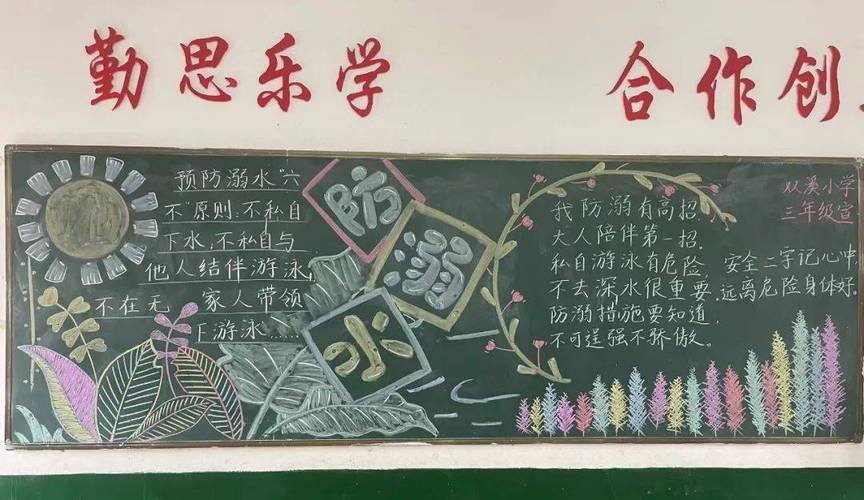 勤思乐学
合作创
预防溺水"六
不"原则:不私自
下水,不私自与
他人结伴游泳,
不在无 家人带领
下游泳……
防
溺
水
我防溺有高招.
大人陪伴第一招.
私自游泳有危险,
不去深水很重要,
防溺措施要知道,
不可逞强不骄傲。
安全二字记心中
远离危险身体好.
双溪小学
三年级宣